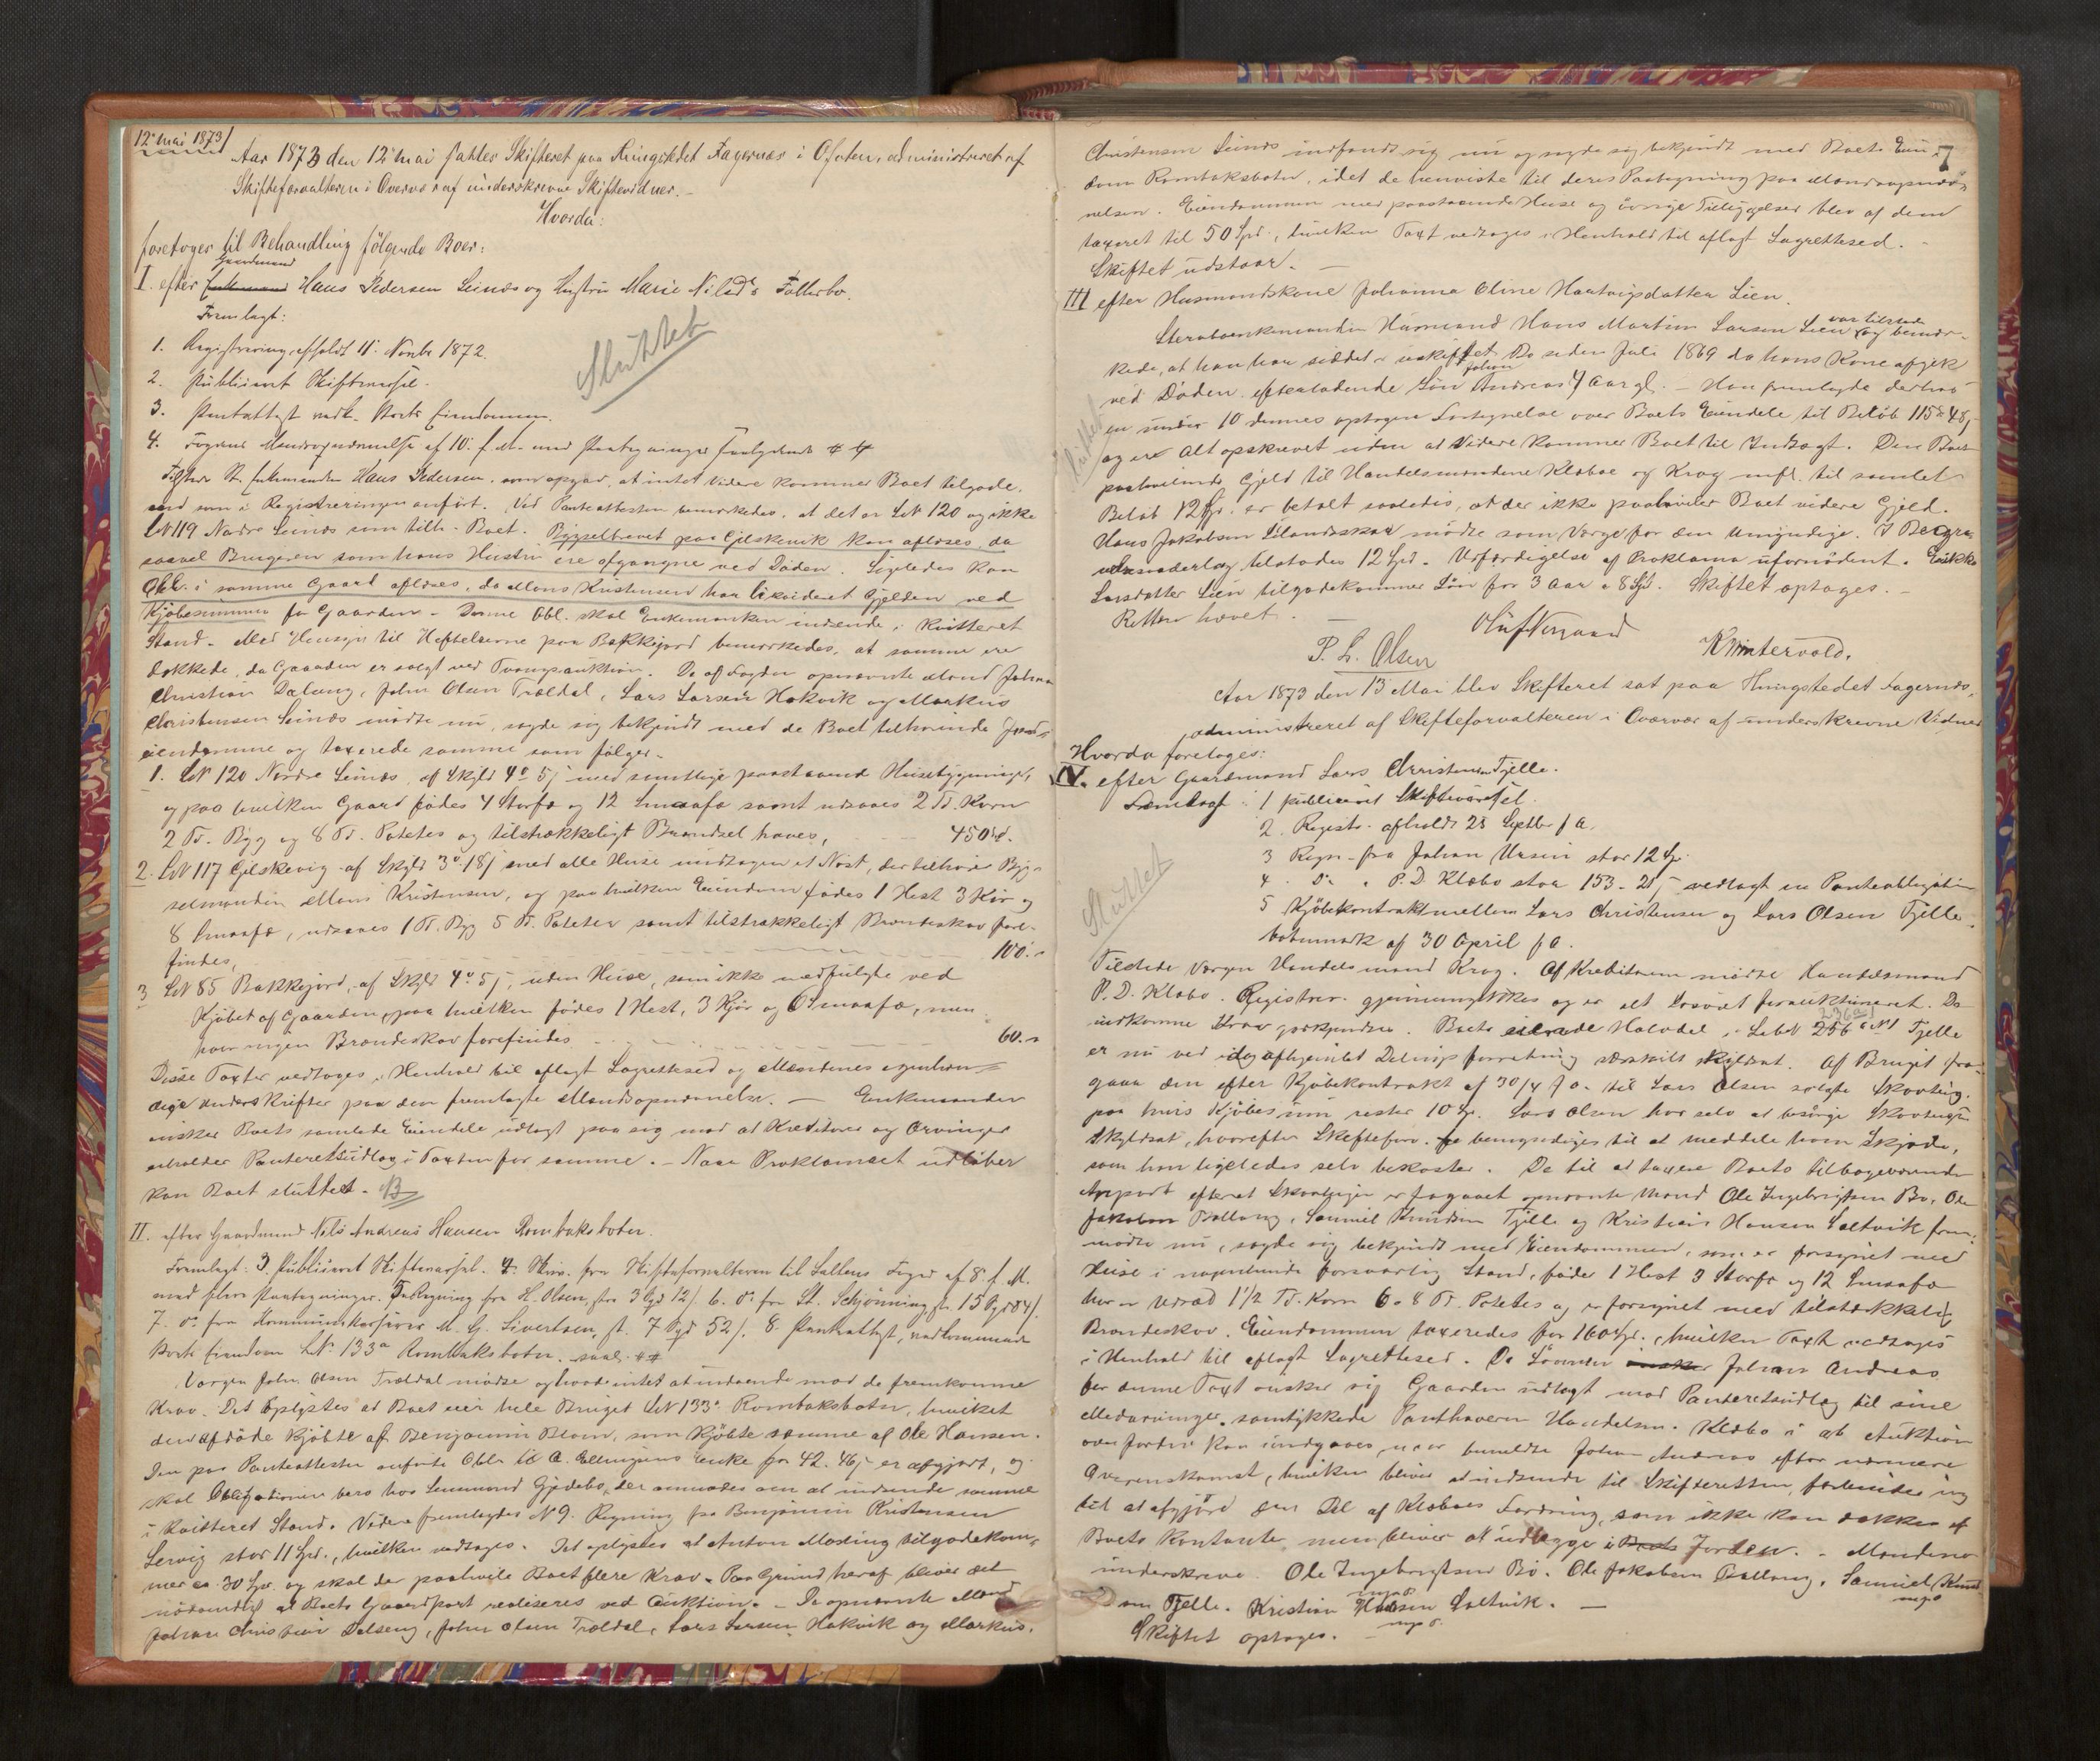 12te mai 1873
Aar 1873 den 12te mai sattes Skifteret paa Thingstedet Fagernæs i Ofoten, administreret af
Skifteforvalteren i Overvær af underskrevne Skiftevidner.-
Hvorda:
foretoges til Behandling følgende Boer:
Gaardmand
I. efter Hans Pedersen Seines og Hustru Marie Nilsd's Fællesbo.
Fremlagt:
1. Registrering afholdt 11. Novbr 1872.
Sluttet
2. Publiceret Skiftevarsel.
3. Panteattest vedk. Boets Eiendomme.
4. Fogdens Mandsopnævnelse af 10. f. M. med Paategninger
Tilstede Enkemanden Hans Pedersen, som opgav, at intet videre kommer Boet tilgode,
end som i Registreringen anført. Ved Panteattesten bemærkedes, at det er LN 120 og ikke
LN 119 Nordre Seines som tilh. Boet. Bygselbrevet paa Gjelskevik kan aflæses, da
saavel Brugeren som hans Hustru ere afgangne ved Døden. Ligeledes kan
Obl. i samme Gaard aflæses, da Mons Kristensen har likvideret Gjelden ved
Kjøbesummen for Gaarden. Denne Obl. skal Enkemanden indsende i kvitteret
Stand. Med Hensyn til Heftelserne paa Bakkejord bemærkedes, at samme ere
dækkede, da Gaarden er solgt ved Tvangsauktion. De af Fogden opnævnte Mænd Johan
Christian Dalseng, John Olsen Trældal, Lars Larsen Hakvik og Markus
Christensen Seines mødte nu, sagde sig bekjendt med de Boet tilhørende Jord-
eiendomme og taxerede samme som følger.
1. LN 120 Nordre Seines, af Skyld 4 o 5 med samtlige paastaaende Husebygninger,
og paa hvilken Gaard fødes 4 Storfæ og 12 Smaafæ samt udsaaes 2 Td. Korn
2 Td. Byg og 8 Td. Poteter og tilstrækkeligt Brændsel haves, 450 Spd.
2. LN 117 Gjelskevig af Skyld 3 o 18 med alle Huse undtagen et Nøst, der tilhører Byg-
selmanden Mons Kristensen, og paa hvilken Eiendom fødes 1 Hest 3 Kjør og
8 Smaafæ, udsaaes 1 Td. Byg 5 Td. Poteter samt tilstrækkeligt Brændeskov fore-
findes, 100.-
3 LN 85 Bakkejord, af Skyld 4 o 5, uden Huse, som ikke medfulgte ved
Kjøbet af Gaarden, paa hvilken fødes 1 Hest, 3 Kjør og 6 Smaafæ, men
hvor ingen Brændeskov forefindes 60.-
Disse Taxter vedtoges i Henhold til aflagt Lagretteed og Mændenes egenhæn-
dige Underskrifter paa den fremlagte Mandsopnævnelse. - Enkemanden
ønsker Boets samlede Eiendele udlagt paa sig mod at Kreditorer og Arvinger
erholder Panteretsudlæg i Taxten for samme. - Naar Proklamaet udløber
kan Boet sluttes.
II. efter Gaardmand Nils Andreas Hansen Rombaksbotn.
Fremlagt: 3. Publiceret Skiftevarsel. 4. Skriv. fra Skifteforvalteren til Saltens Foged af 8. f. M.
med flere Paategninger. 5 Regning fra H. Olsen, stor 3 Spd 12 ß. 6. do fra St. Schjønning st. 15 Spd 84 ß.
7. do fra Kommunekasserer M. G. Sivertsen, st. 7 Spd 52 ß. 8. Panteattest, vedkommende
Boets Eiendom LN. 133a Rombaksbotn.
Vergen John Olsen Trældal mødte og havde intet at indvende mod de fremkomne
Krav. Det oplystes at Boet eier hele Bruget LN 133a Rombaksbotn, hvilket
den afdøde kjøbte af Benjamin Blom, som kjøbte samme af Ole Hansen.
Den paa Panteattesten anførte Obl. til A. Ellingsens Enke for 42. 46 er afgjort, og
skal Obligationen bero hos Lensmand Gjedebo, der anmodes om at indsende samme
i kvitteret Stand. Videre fremlagdes N 9. Regning fra Benjamin Kristensen
Lervig stor 11 Spd., hvilken vedtages. Det oplystes at Anton Mosling tilgodekom-
mer ca 30 Spd. og skal der paahvile Boet flere Krav. Paa Grund heraf bliver det
nødvendigt at Boets Gaardpart realiseres ved Auktion. - De opnævnte Mænd
Johan Christian Dalseng, John Olsen Trældal, Lars Larsen Hakvik og Markus
7
Christensen Seines indfandt sig nu og sagde sig bekjendt med Boets Eien-
dom Rombaksbotn, idet de henviste til deres Paategning paa Mandsopnæv-
nelsen. Eiendommen med paastaaende Huse og øvrige Tilbygelser blev af dem
taxeret til 50 Spd., hvilken Taxt vedtages i Henhold til aflagt Lagretteed. -
Skiftet udstaar. -
III efter Husmandskone Johanna Oline Hartvigsdatter Lien.
Sterbosenkemanden Husmand Hans Martin Larsen Lien var tilstede og bemær-
kede, at han har siddet i uskiftet Bo siden Juli 1869 da hans Kone afgik
ved Døden efterladende Søn Johan Andreas 4 Aar gl. - Han fremlagde derhos
en under 10 dennes optagen Fortegnelse over Boets Eiendele til Beløb 115 48
og er Alt opskrevet uden at Videre kommer Boet til Indtægt. Den Boet
paahvilende Gjeld til Handelsmændene Klæboe og Krog mfl. til samlet
Beløb 12 Spd. er betalt saaledes, at der ikke paahviler Boet videre Gjeld.
Hans Jakobsen Skandskar mødte som Verge for den Umyndige. I Begra-
velsesvederlag tilstodes 12 Spd. Udfærdigelse af Proklama ufornødent. Erikka
Larsdatter Lien tilgodekommer Løn for 3 Aar a 8 Spd. Skiftet optages. -
Sluttet
Retten hævet. -
P. L. Olsen
K Wintervold.
Aar 1873 den 13 Mai blev Skifteret sat paa Thingstedet Fagernes,
administreret af Skifteforvalteren i Overvær af underskrevne Vidner
Hvorda foretoges:
IV. efter Gaardmand Lars Christensen Fjelle.
Fremlagt: 1 publiceret Skiftevarsel.
2. Registr. afholdt 28 Septbr f a.
3 Regn. fra Johan Ursin stor 12 Spd.
4 do " P. D. Klæbo stor 153- 21 vedlagt en Panteobligation
5 Kjøbekontrakt mellem Lars Christensen og Lars Olsen Fjelle
botnmark af 30 April f a.
Sluttet
Tilstede Vergen Handelsmand Krog. Af Kreditorerne mødte Handelsmand
P. D. Klæbo. Registrer. gjennemgikkes og er alt Løsøret forauktioneret. De
indkomne Krav godkjendtes. Boets eiende Halvdel i LebN 256 a N1 Fjelle
236a
er nu ved idag afhjemlet Delingsforretning særskilt skyldsat. Af Bruget fra-
gaar den efter Kjøbekontrakt af 30/4 f a. til Lars Olsen solgte Skovteig,
paa hvis Kjøbesum rester 10 Spd. Lars Olsen har selv at besørge Skovteigen
skyldsat, hvorefter Skifteforv. bemyndiges til at meddele ham Skjøde,
som han ligeledes selv bekoster. De til at taxere Boets tilbageværende
Anpart efterat Skovteigen er fragaaet opnævnte Mænd Ole Ingebrigtsen Bø, Ole
Jakobsen Tallang, Samuel Knudsen Fjelle og Kristian Hansen Saltvik frem-
mødte nu, sagde sig bekjendt med Eiendommen, som er forsynet med
Huse i nogenlunde forsvarlig Stand, føder 1 Hest 3 Storfæ og 12 Smaafæ
har Udsæd 1 1/2 Td. Korn 6 a 8 Td. Poteter og er forsynet med tilstrækkelig
Brændeskov. Eiendommen taxeredes for 160 Spd., hvilken Taxt vedtages
i Henhold til aflagt Lagretteed. Da Sønnen Johan Andreas
for denne Taxt ønsker sig Gaarden udlagt mod Panteretsudlæg til sine
Medarvinger, samtykkede Panthaveren Handelsm. Klæbo i at Auktion
over Jorden kan undgaaes, naar bemeldte Johan Andreas efter nærmere
Overenskomst, hvilken bliver at indsende til Skifteretten, forbinder sig
til at afgjøre den Del af Klæboes Fordring, som ikke kan dækkes af
Boets Kontanter men bliver at udlægge i Jorden. - Mændene
underskreve. Ole Ingebrigtsen Bø. Ole Jakobsen Tallang, Samuel Knud-
sen Fjelle. Kristian Hansen Saltvik. -
Skiftet optages.